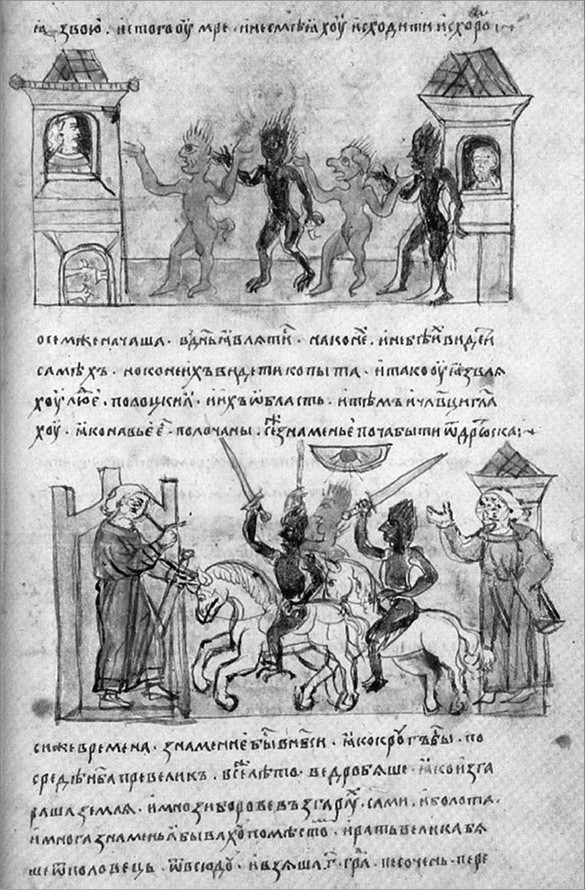 ꙗ звою · и с того оу мре · и не смѣꙗ хоу исходити ис хоро
ѡсемже начаша · в дн҃ь ꙗвлѧтис · на коне · и не бѣ и видети
самѣхъ · но коне ихъ видети копыта · и тако оуꙗзвлѧ
хоу люе · полоцкиꙗ · и ихъ ѡбласть · и тѣмъ и чл҃вци гл҃а
хоу · ꙗко навье бе · полочаны · се знаменье поча быти ѿ дрюска
си же времена · знамение бы в нб҃си · ꙗко кроугъ бы · по
средѣ нб҃а превеликъ · в се лѣто ведро бѧше · ꙗко изга
раша земла · и мнози борове възгарахꙋ · сами · и болота ·
и многа знаменьꙗ бывахꙋ по мѣсто · и рать велика бѧ
ше ѿ половець · ѿвсюдꙋ · и взѧша · г҃ · гра · песочень · пере